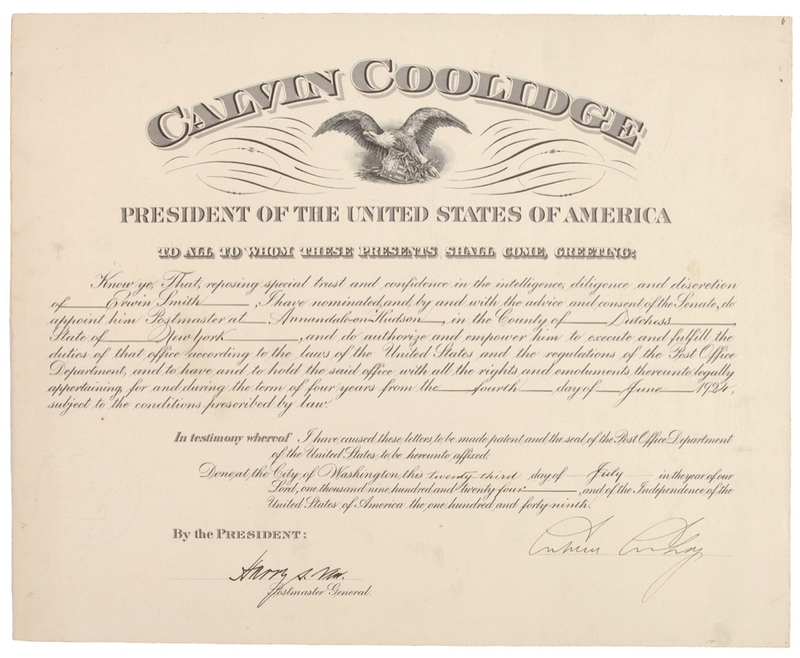 CALVIN COOLIDGE
PRESIDENT OF THE UNITED STATES OF AMERICA
TO ALL TO WHOM THESE PRESENTS SHALL COME, GREETING:
Know ye, That, reposing special trust and confidence in the intelligence, diligence and discretion
of Erwin Smith, I have nominated, and, by and with the advice and consent of the Senate, do
appoint him Postmaster at Annandale-on-Hudson, in the County of Dutchess,
State of New York, and do authorize and empower him to execute and fulfill the
duties of that office according to the laws of the United States and the regulations of the Post Office
Department, and to have and to hold the said office, with all the rights and emoluments thereunto legally
appertaining, for and during the term of four years from the fourth day of June 1924,
subject to the conditions prescribed by law.
In testimony whereof I have caused these letters to be made patent and the seal of the Post Office Department
of the United States to be hereunto affixed.
Done at the City of Washington, this twenty third day of July in the year of our
Lord, one thousand nine hundred and twenty four, and of the Independence of the
United States of America the one hundred and forty-ninth.
By the PRESIDENT:
Calvin Coolidge
Harry S. New.
Postmaster General.